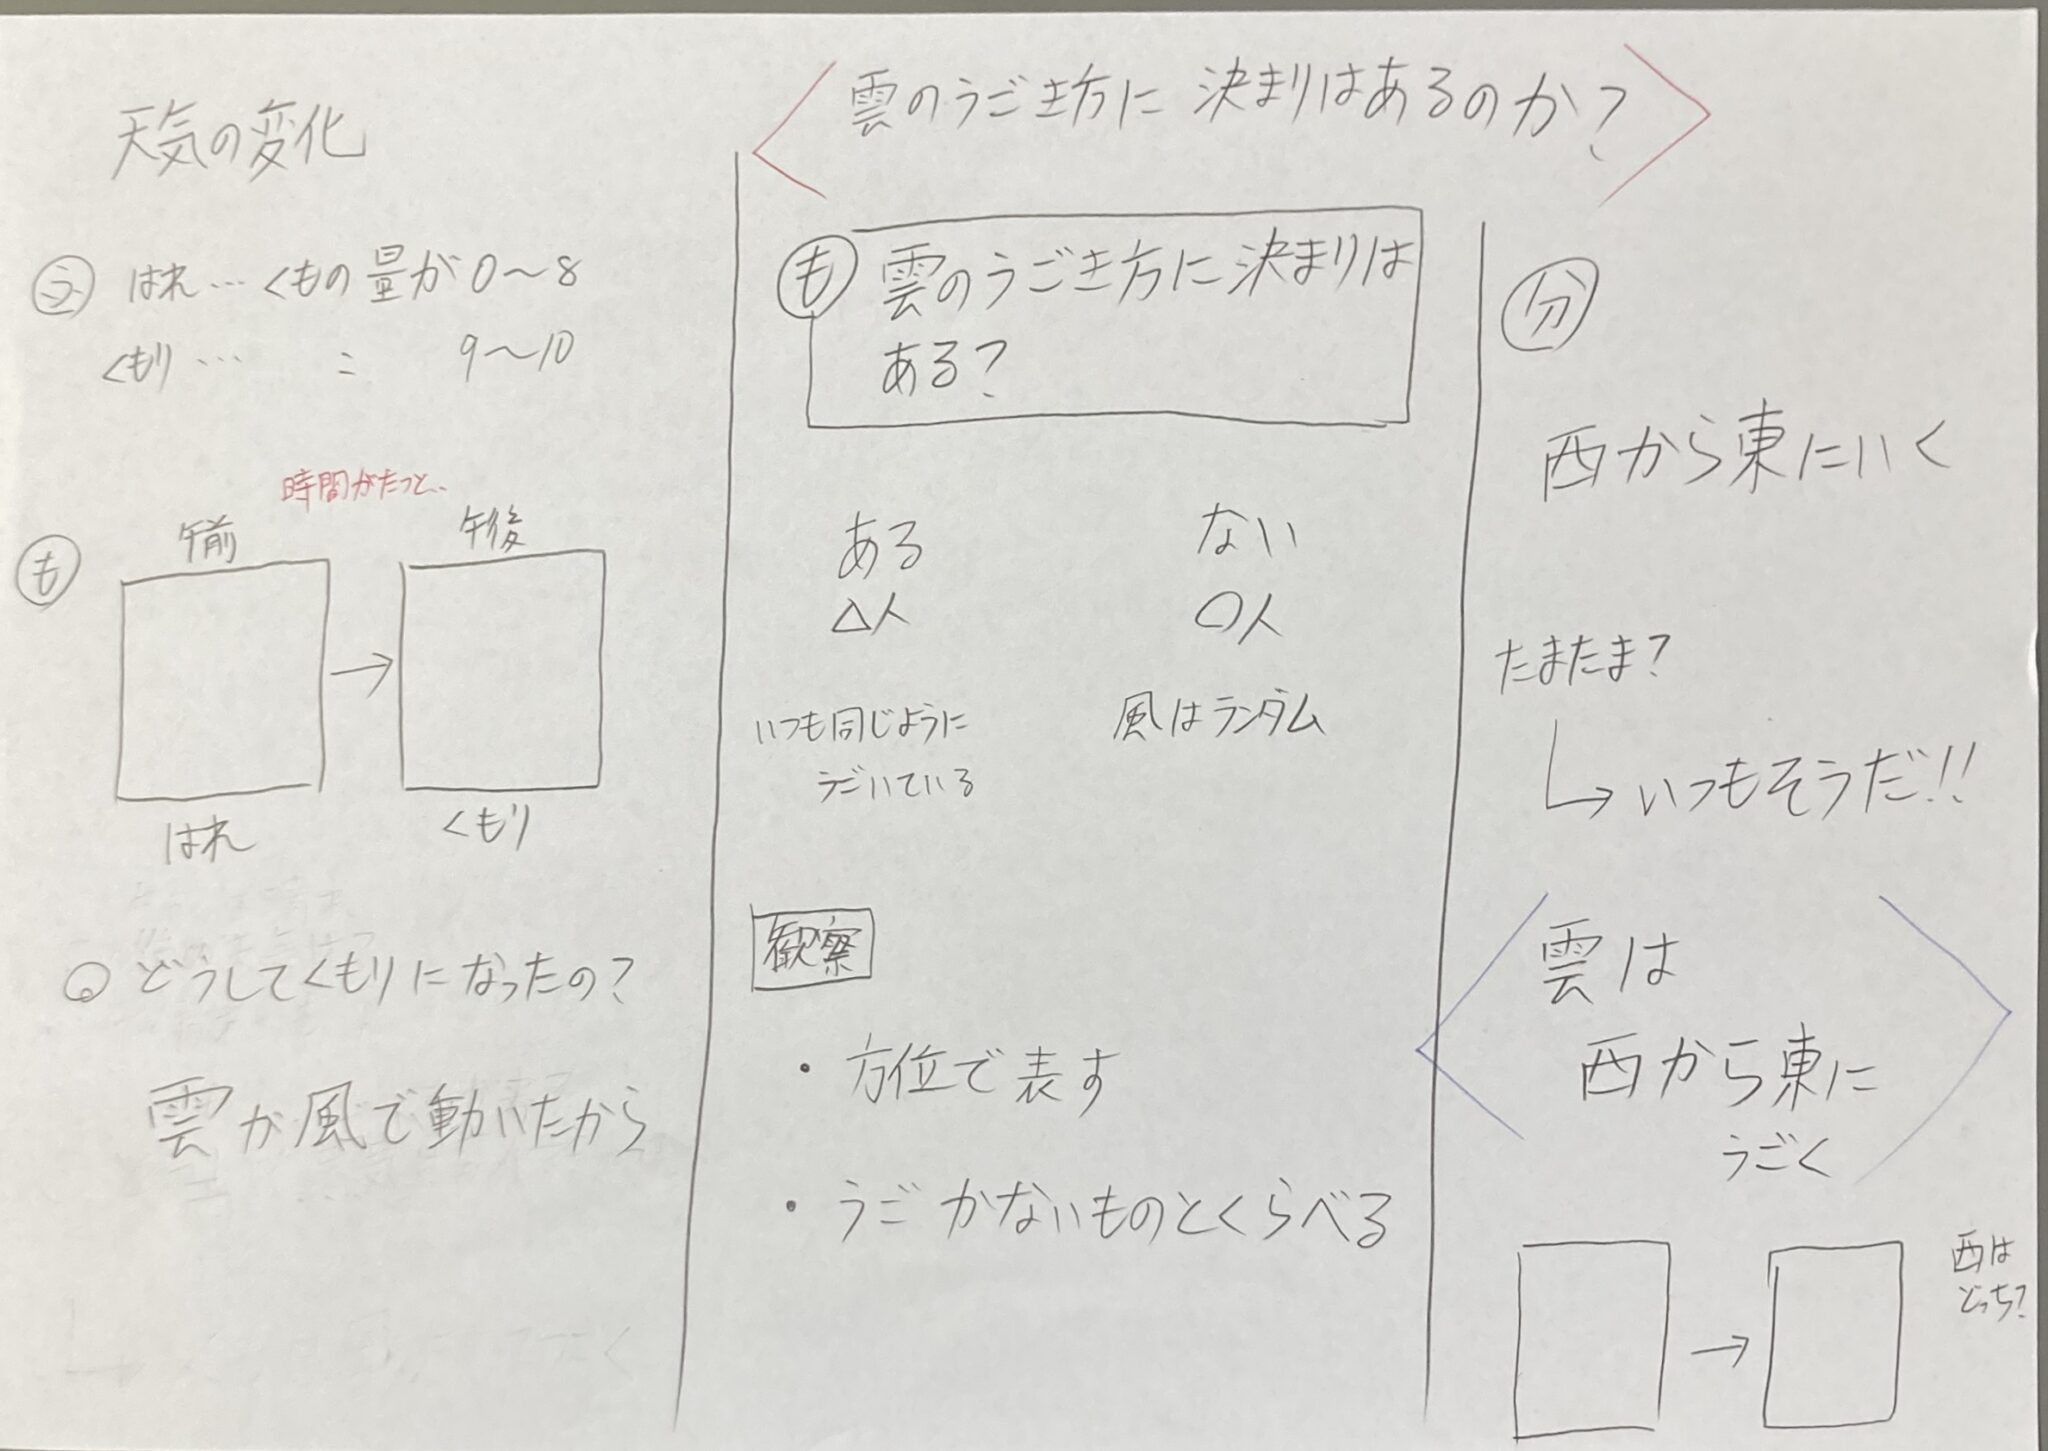 天気の変化
㋒ はれ…くもの量が0〜8
くもり… 〃 9〜10
時間がたつと…
も
午前 → 午後
はれ くもり
○ どうしてくもりになったの?
雲が風で動いたから
雲のうごき方に決まりはあるのか?
も 雲のうごき方に決まりは
ある?
ある ない
△人 ○人
いつも同じように
うごいている
風はランダム
観察
・方位で表す
・うごかないものとくらべる
分
西から東にいく
たまたま?
→いつもそうだ!!
雲は
西から東に
うごく
→
西は
どっち?